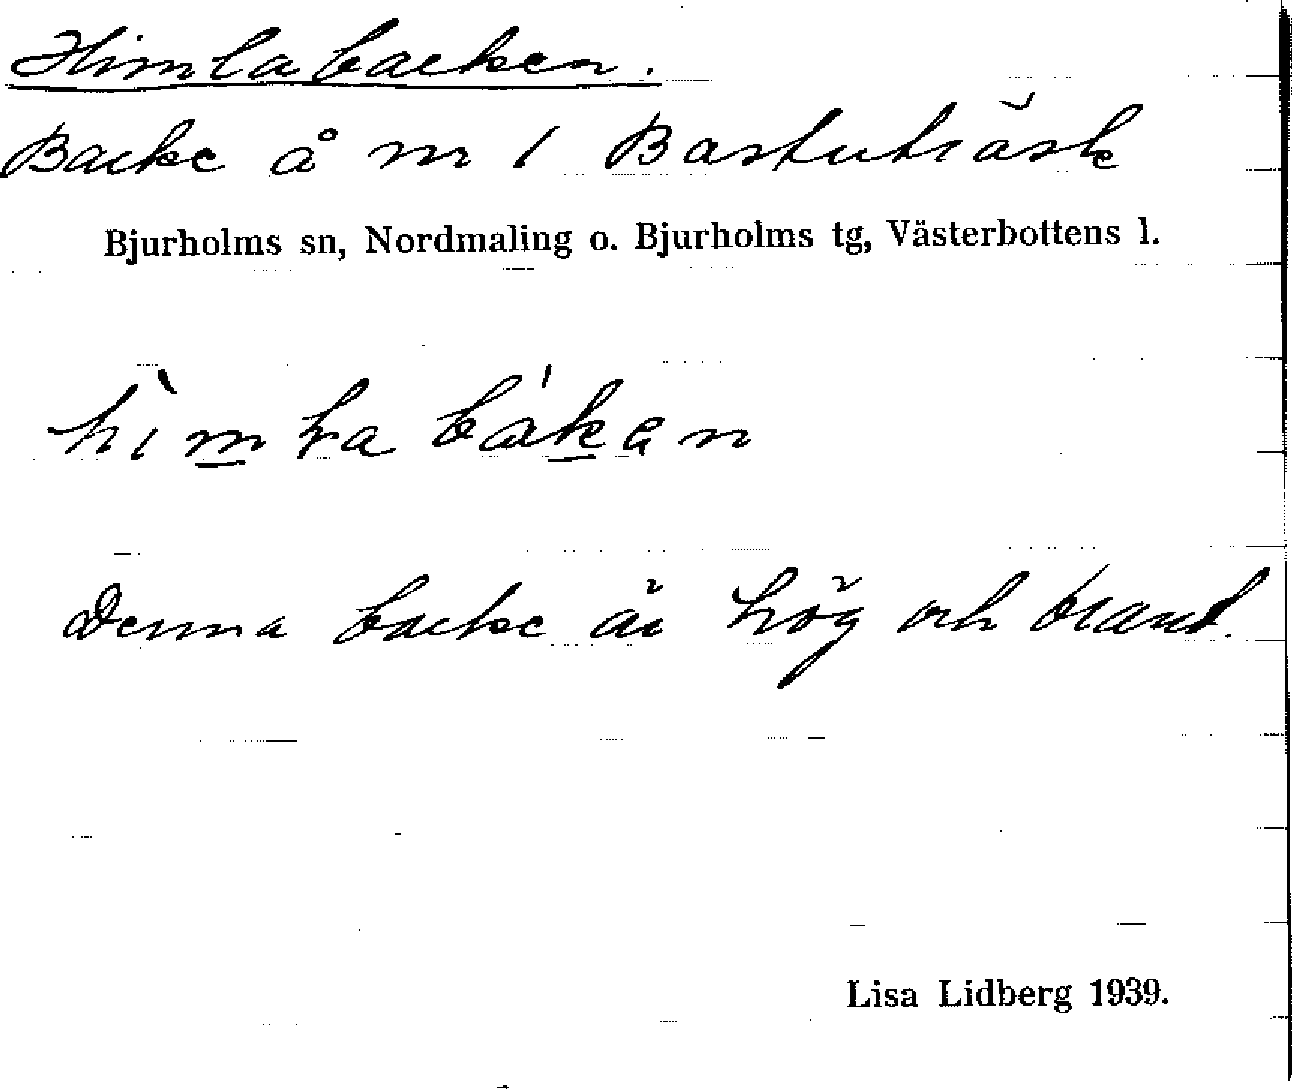 Himlabacken.
Backe å nr 1 Bastuträsk
Bjurholms sn, Nordmaling o. Bjurholms tg, Västerbottens l.
Denna backe är hög och brant.
Lisa Lidberg 1939.